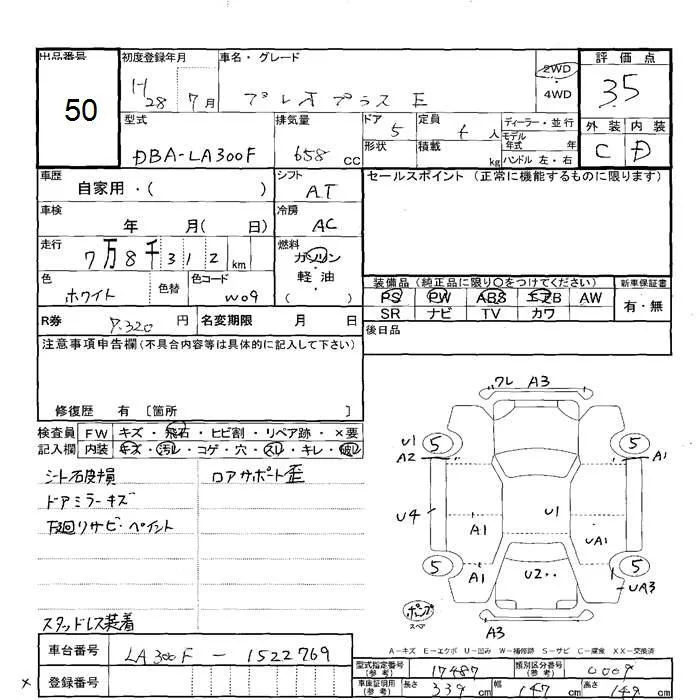 出品番号 初度登録年月 車名・グレード 評価点
50 H28 7月 プレオプラス E 2WD ・ 4WD 35
型式 排気量 ドア 定員 ディーラー・並行 外装 内装
DBA-LA300F 658 CC 5 4人 モデル年式 年 C D
形状 積載 kg ハンドル 左・右
車歴 シフト セールスポイント (正常に機能するものに限ります)
自家用・( ) AT
車検 冷房
年 月( 日) AC
走行 燃料
7万8千312km ガソリン
軽・油
( )
色 色替 色コード 装備品 (純正品に限り○をつけてください) 新車保証書
ホワイト W09 PS PW ABS エアB AW 有・無
SR ナビ TV カワ
R券 7,320 円 名変期限 月 日 後日品
注意事項申告欄 (不具合内容等は具体的に記入して下さい)
修復歴 有 [箇所 ]
検査員 FW キズ・飛石・ヒビ割・リペア跡・×要
記入欄 内装 キズ・汚レ・コゲ・穴・スレ・キレ・破レ
シート石皮損 ロアサポート歪
ドアミラーキズ
下廻りサビ・ペイント
スタッドレス装着
ワレ A3
U1 5 5
A2 A1
U4 A1 U1 UA1
5 A1 U2 5
UA3
ポンプ
スペア
A3
A-キズ E-エクボ U-凹み W-補修跡 S-サビ C-腐食 XX-交換済
車台番号 LA300F - 1522769
登録番号
型式指定番号 (参考) 17487 類別区分番号 (参考) 0009
車庫証明用 (参考) 長さ 339 cm 幅 147 cm 高さ 149 cm
×